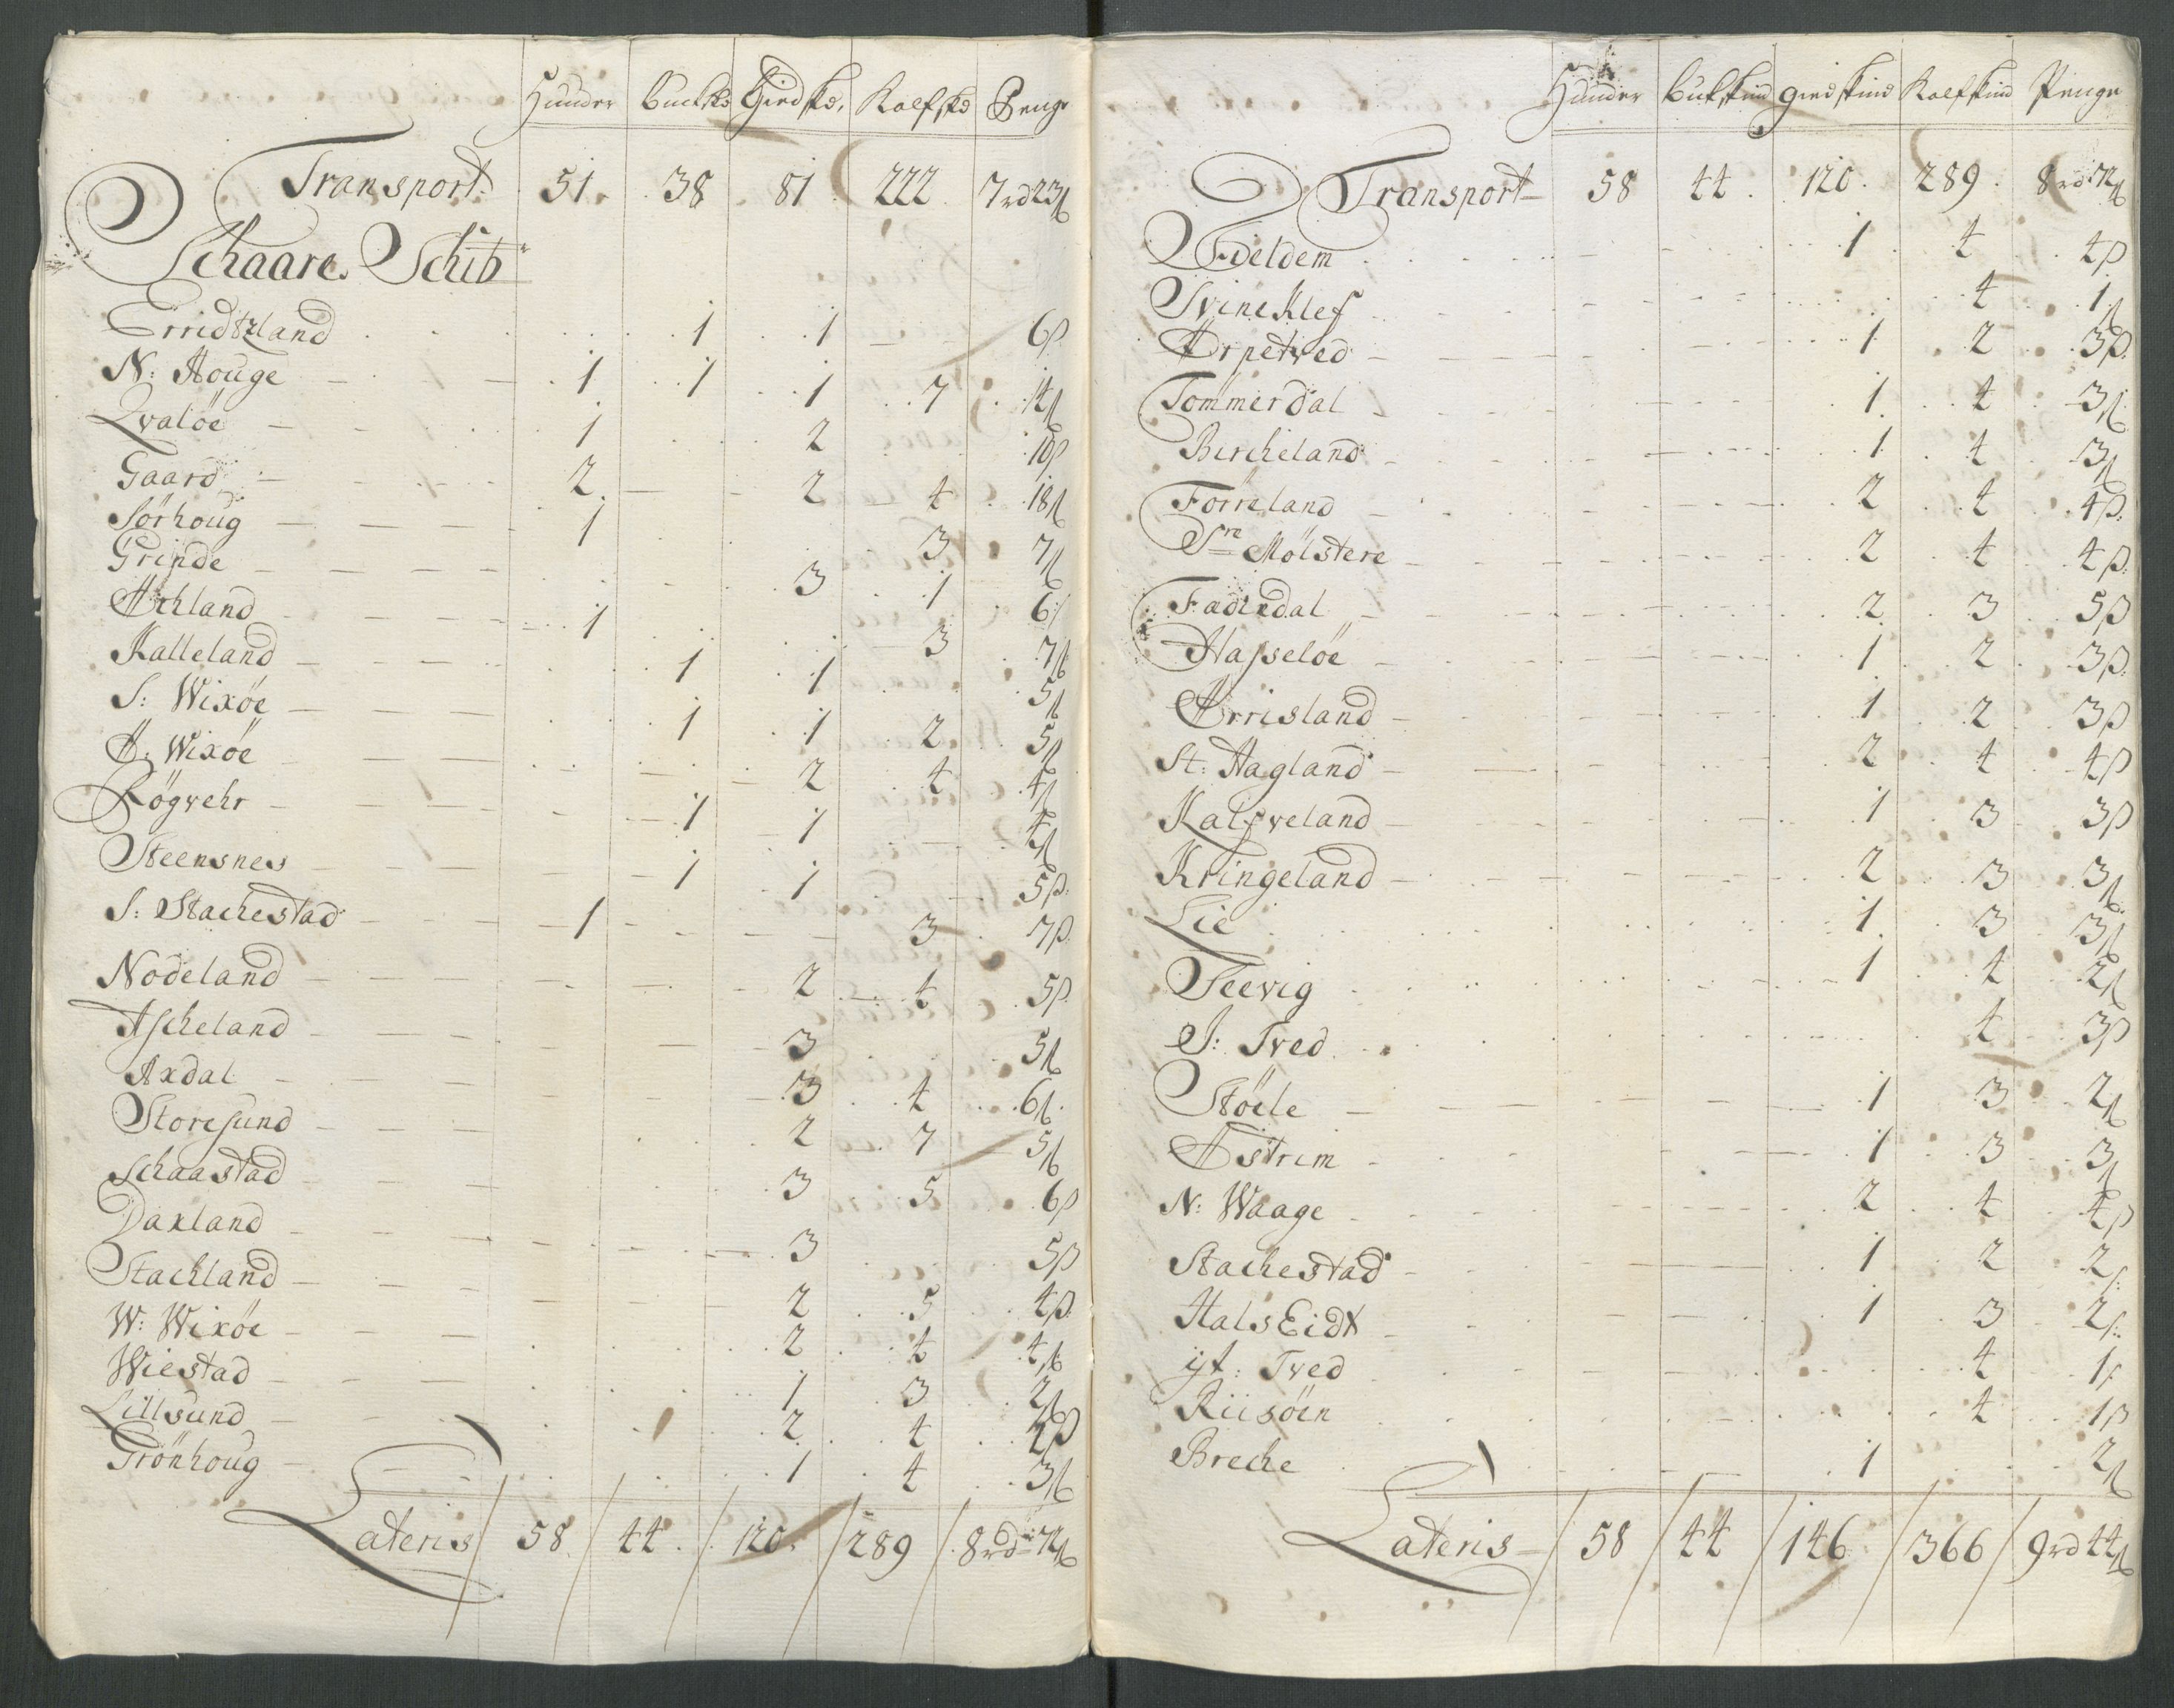 Hunder Buckskd Giedskd. Kalfskd Penge
Transport 51 38 81 222 7rd 23ß
Schaare Schib
Erridtzland 1 1 6ß
N: Houge 1 1 1 7 14ß
Qvaløe 1 2 10ß
Gaard 2 2 4 18ß
Sörhoug 1 3 7ß
Grinde 3 1 6ß
Arhland 1 3 7ß
Kalleland 1 1 5ß
S: Wixöe 1 1 2 5ß
A: Wixöe 2 4 4ß
Rögvehr 1 1 4ß
Steensnes 1 1 5ß
S: Stachestad 1 3 7ß
Nodeland 2 4 5ß
Ascheland 3 5ß
Axdal 3 4 6ß
Storesund 2 7 5ß
Schaastad 3 5 6ß
Daxland 3 5ß
Stachland 2 5 4ß
W: Wixöe 2 4 4ß
Wiestad 1 3 2ß
Lillsund 2 4 4ß
Grönhoug 1 4 3ß
Lateris 58 44 120 289 8rd 72ß
Hunder Bukskind giedskind Kalfskind Penge
Transport 58 44 120 289 8rd 72ß
Fieldem 1 4 4ß
Svineklef 4 1ß
Arpetved 1 2 3ß
Tömmerdal 1 4 3ß
Bircheland 1 4 3ß
Förreland 2 4 4ß
Sre Mölstere 2 4 4ß
Fadixdal 2 3 5ß
Hasseløe 1 2 3ß
Arrisland 1 2 3ß
St: Hagland 2 4 4ß
Kalfveland 1 3 3ß
Kringeland 2 3 3ß
Lie 1 3 3ß
Seevig 1 4 2ß
S: Tved 4 3ß
Stöele 1 3 2ß
Østrim 1 3 3ß
N: Waage 2 4 4ß
Stachestad 1 2 2ß
Hals Eidt 1 3 2ß
yt: Tved 4 1ß
Riisöen 4 1ß
Breche 1 2ß
Lateris 58 44 146 366 9rd 44ß